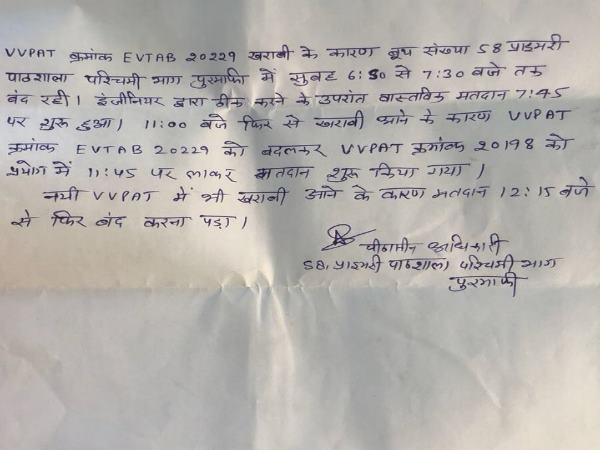 VVPAT क्रमांक EVTAB 20229 खराबी के कारण बूथ संख्या 58 प्राइमरी
पाठशाला पश्चिमी भाग पुरमाफी में सुबह 6:30 से 7:30 बजे तक
बंद रही। इंजीनियर द्वारा ठीक करने के उपरांत वास्तविक मतदान 7:45
पर शुरू हुआ। 11:00 बजे फिर से खराबी आने के कारण VVPAT
क्रमांक EVTAB 20229 को बदलकर VVPAT क्रमांक 20198 को
प्रयोग में 11:45 पर लाकर मतदान शुरू किया गया।
नयी VVPAT में भी खराबी आने के कारण मतदान 12:15 बजे
से फिर बंद करना पड़ा।
पीठासीन अधिकारी
58, प्राइमरी पाठशाला पश्चिमी भाग
पुरमाफी